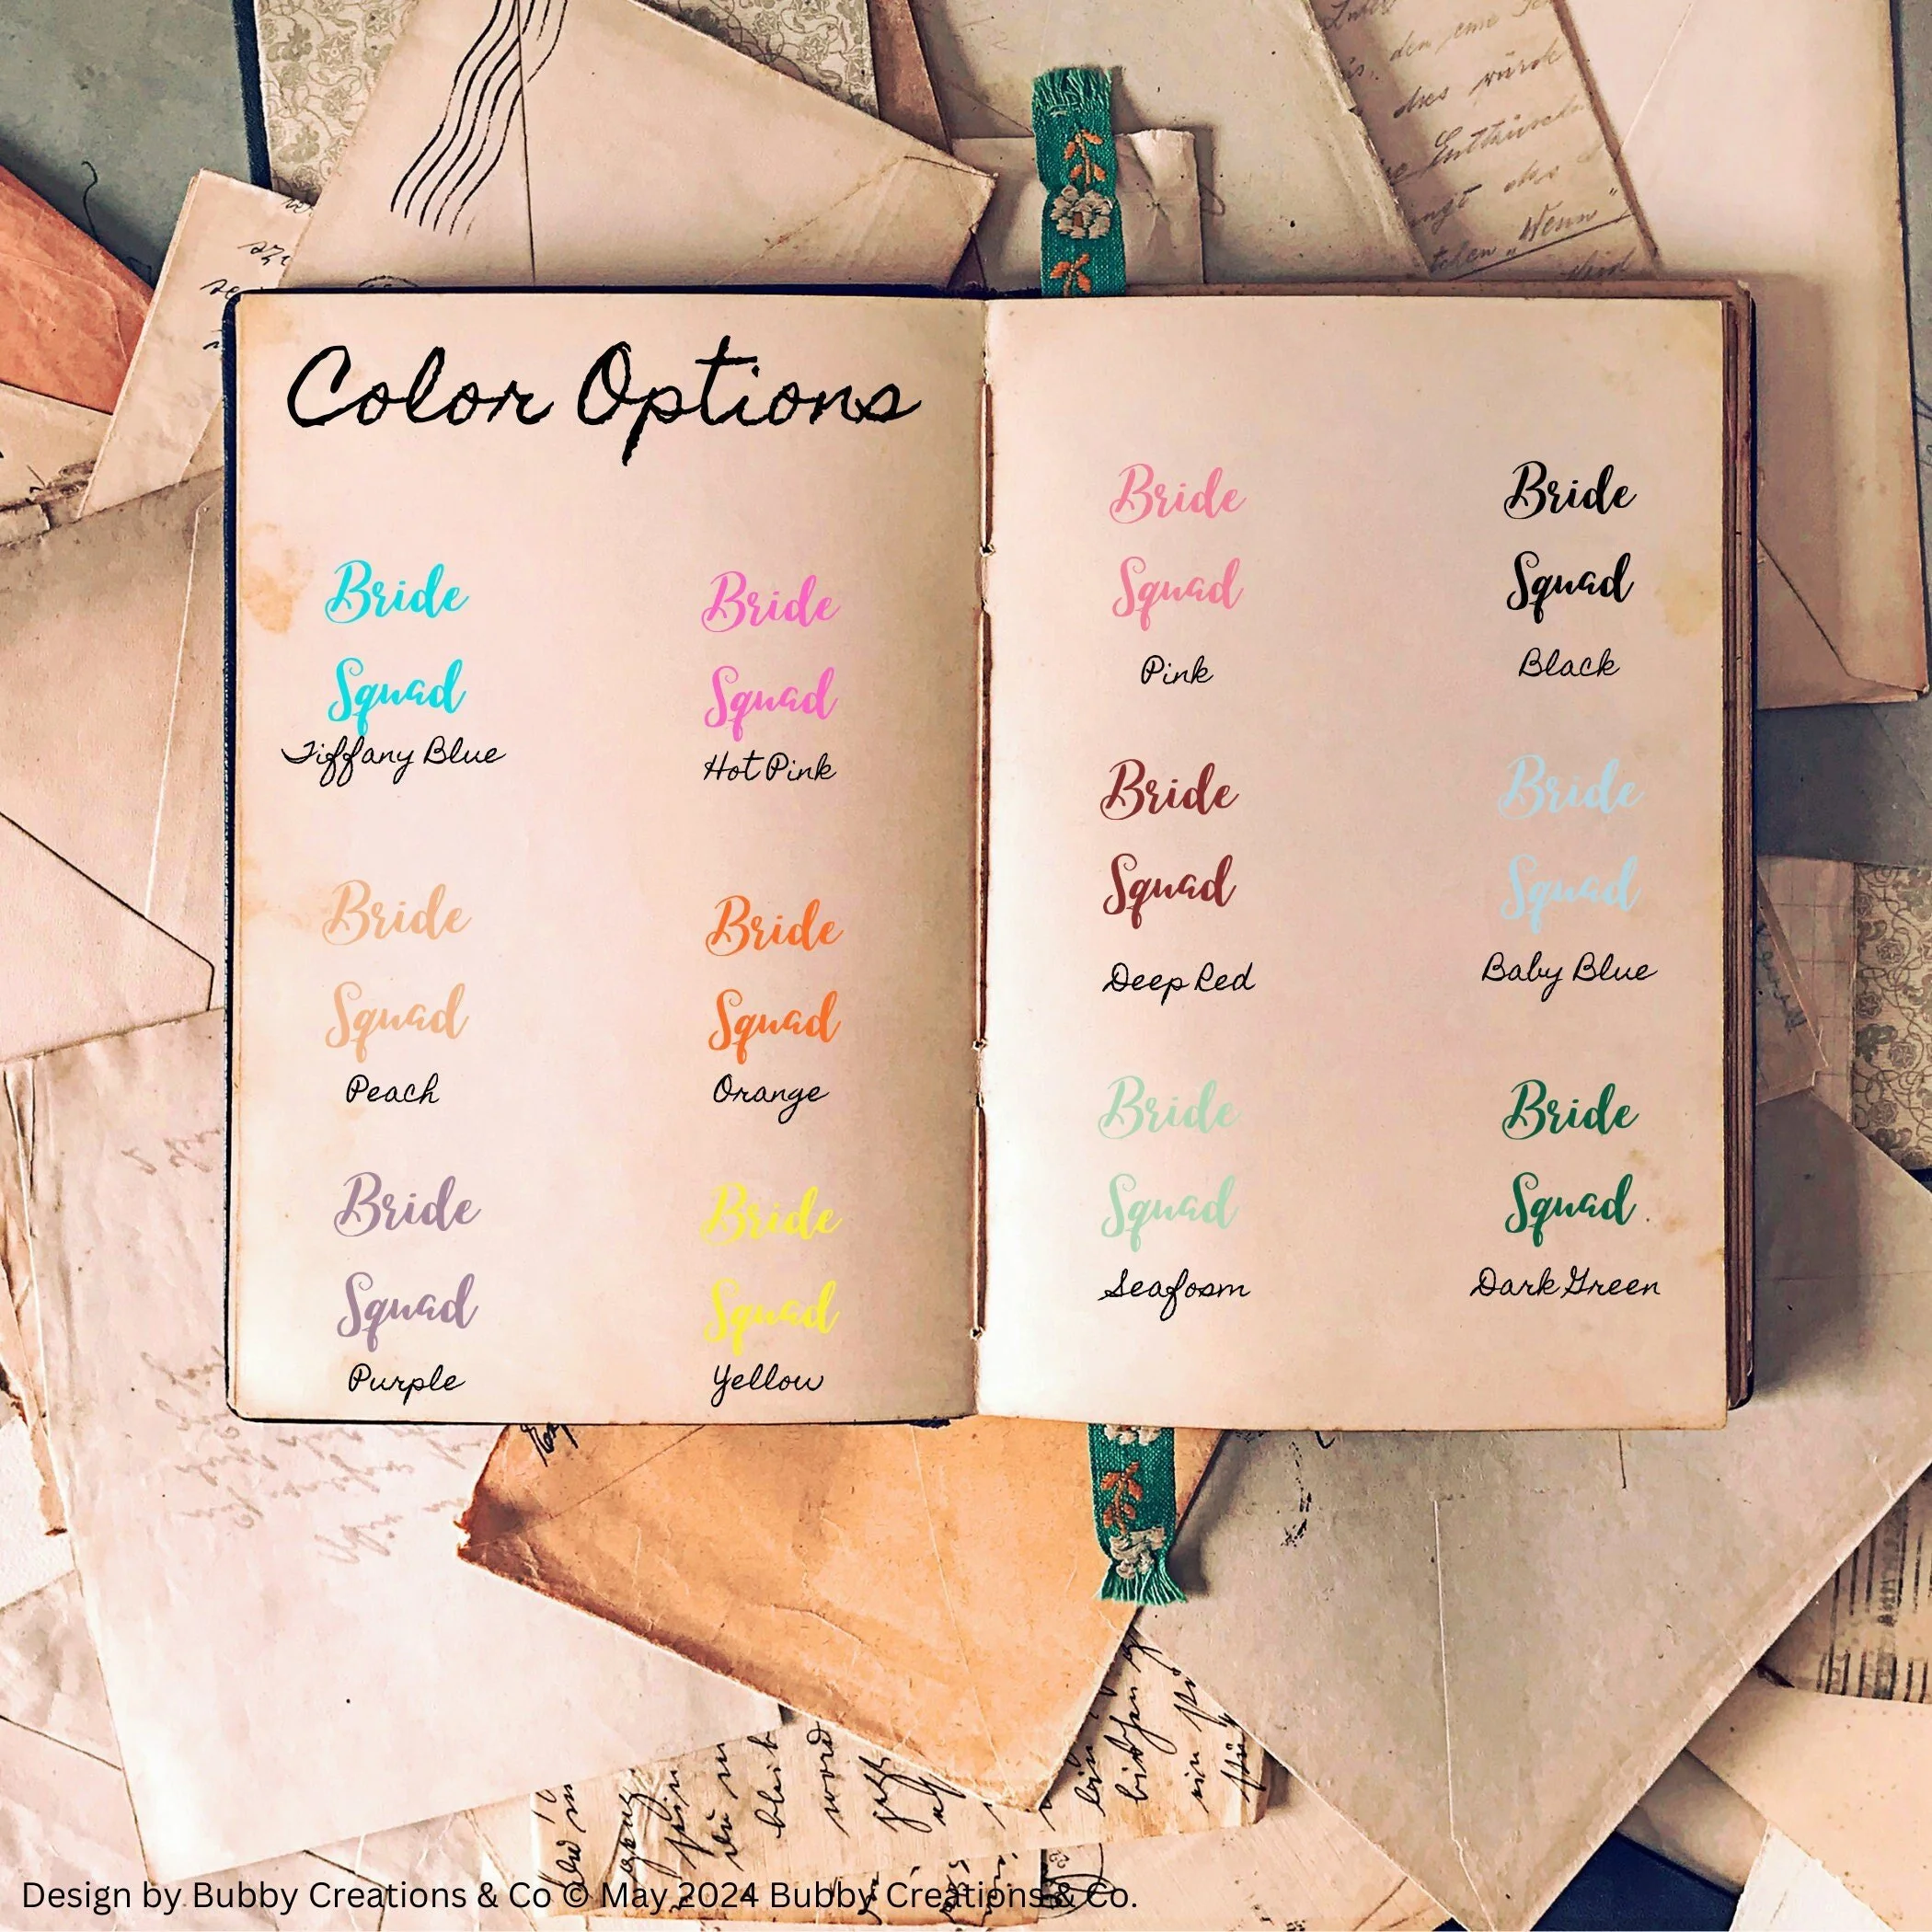 Color Options
Bride
Squad
Tiffany Blue
Bride
Squad
Hot Pink
Bride
Squad
Peach
Bride
Squad
Orange
Bride
Squad
Purple
Bride
Squad
Yellow
Bride
Squad
Pink
Bride
Squad
Black
Bride
Squad
Deep Red
Bride
Squad
Baby Blue
Bride
Squad
Seafoam
Bride
Squad
Dark Green
dies würde
"Wenn"
bleib
Design by Bubby Creations & Co © May 2024 Bubby Creations & Co.